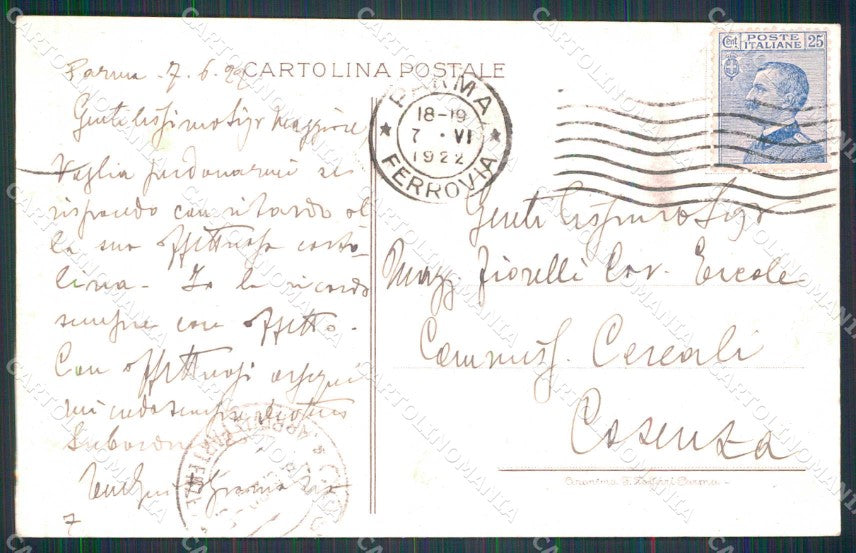 CARTOLINA POSTALE
Parma. 7. 6. 22
Gentilissimo Sigr Maggiore
Voglia perdonarmi se
rispondo con ritardo al
la sua affettuosa carto
lina. Io la ricordo
sempre con affetto.
Con affettuosi ossequi
mi creda sempre
Subord
Ten
7
PARMA
18-19
7 · VI
1922
FERROVIA
Cent POSTE ITALIANE 25
Gentilissimo Sigr
Magg Fiorelli Cav. Ercole
Commiss. Cereali
Cosenza
CARTOLINOMANIA